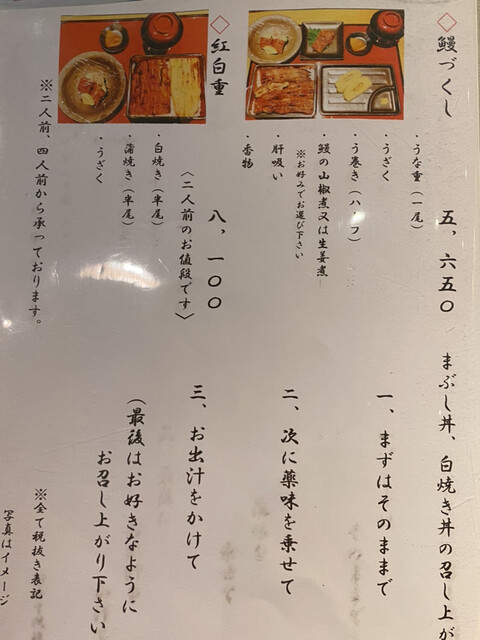 ◇鰻づくし 五、六五〇
・うな重（一尾）
・うざく
・う巻き（ハーフ）
・鰻の山椒煮又は生姜煮
※お好みでお選び下さい
・肝吸い
・香物
◇紅白重 八、一〇〇
〈二人前のお値段です〉
・白焼き（半尾）
・蒲焼き（半尾）
・うざく
※二人前、四人前から承っております。
まぶし丼、白焼き丼の召し上が
一、まずはそのままで
二、次に薬味を乗せて
三、お出汁をかけて
（最後はお好きなように
お召し上がり下さい
※全て税抜き表記
写真はイメージ